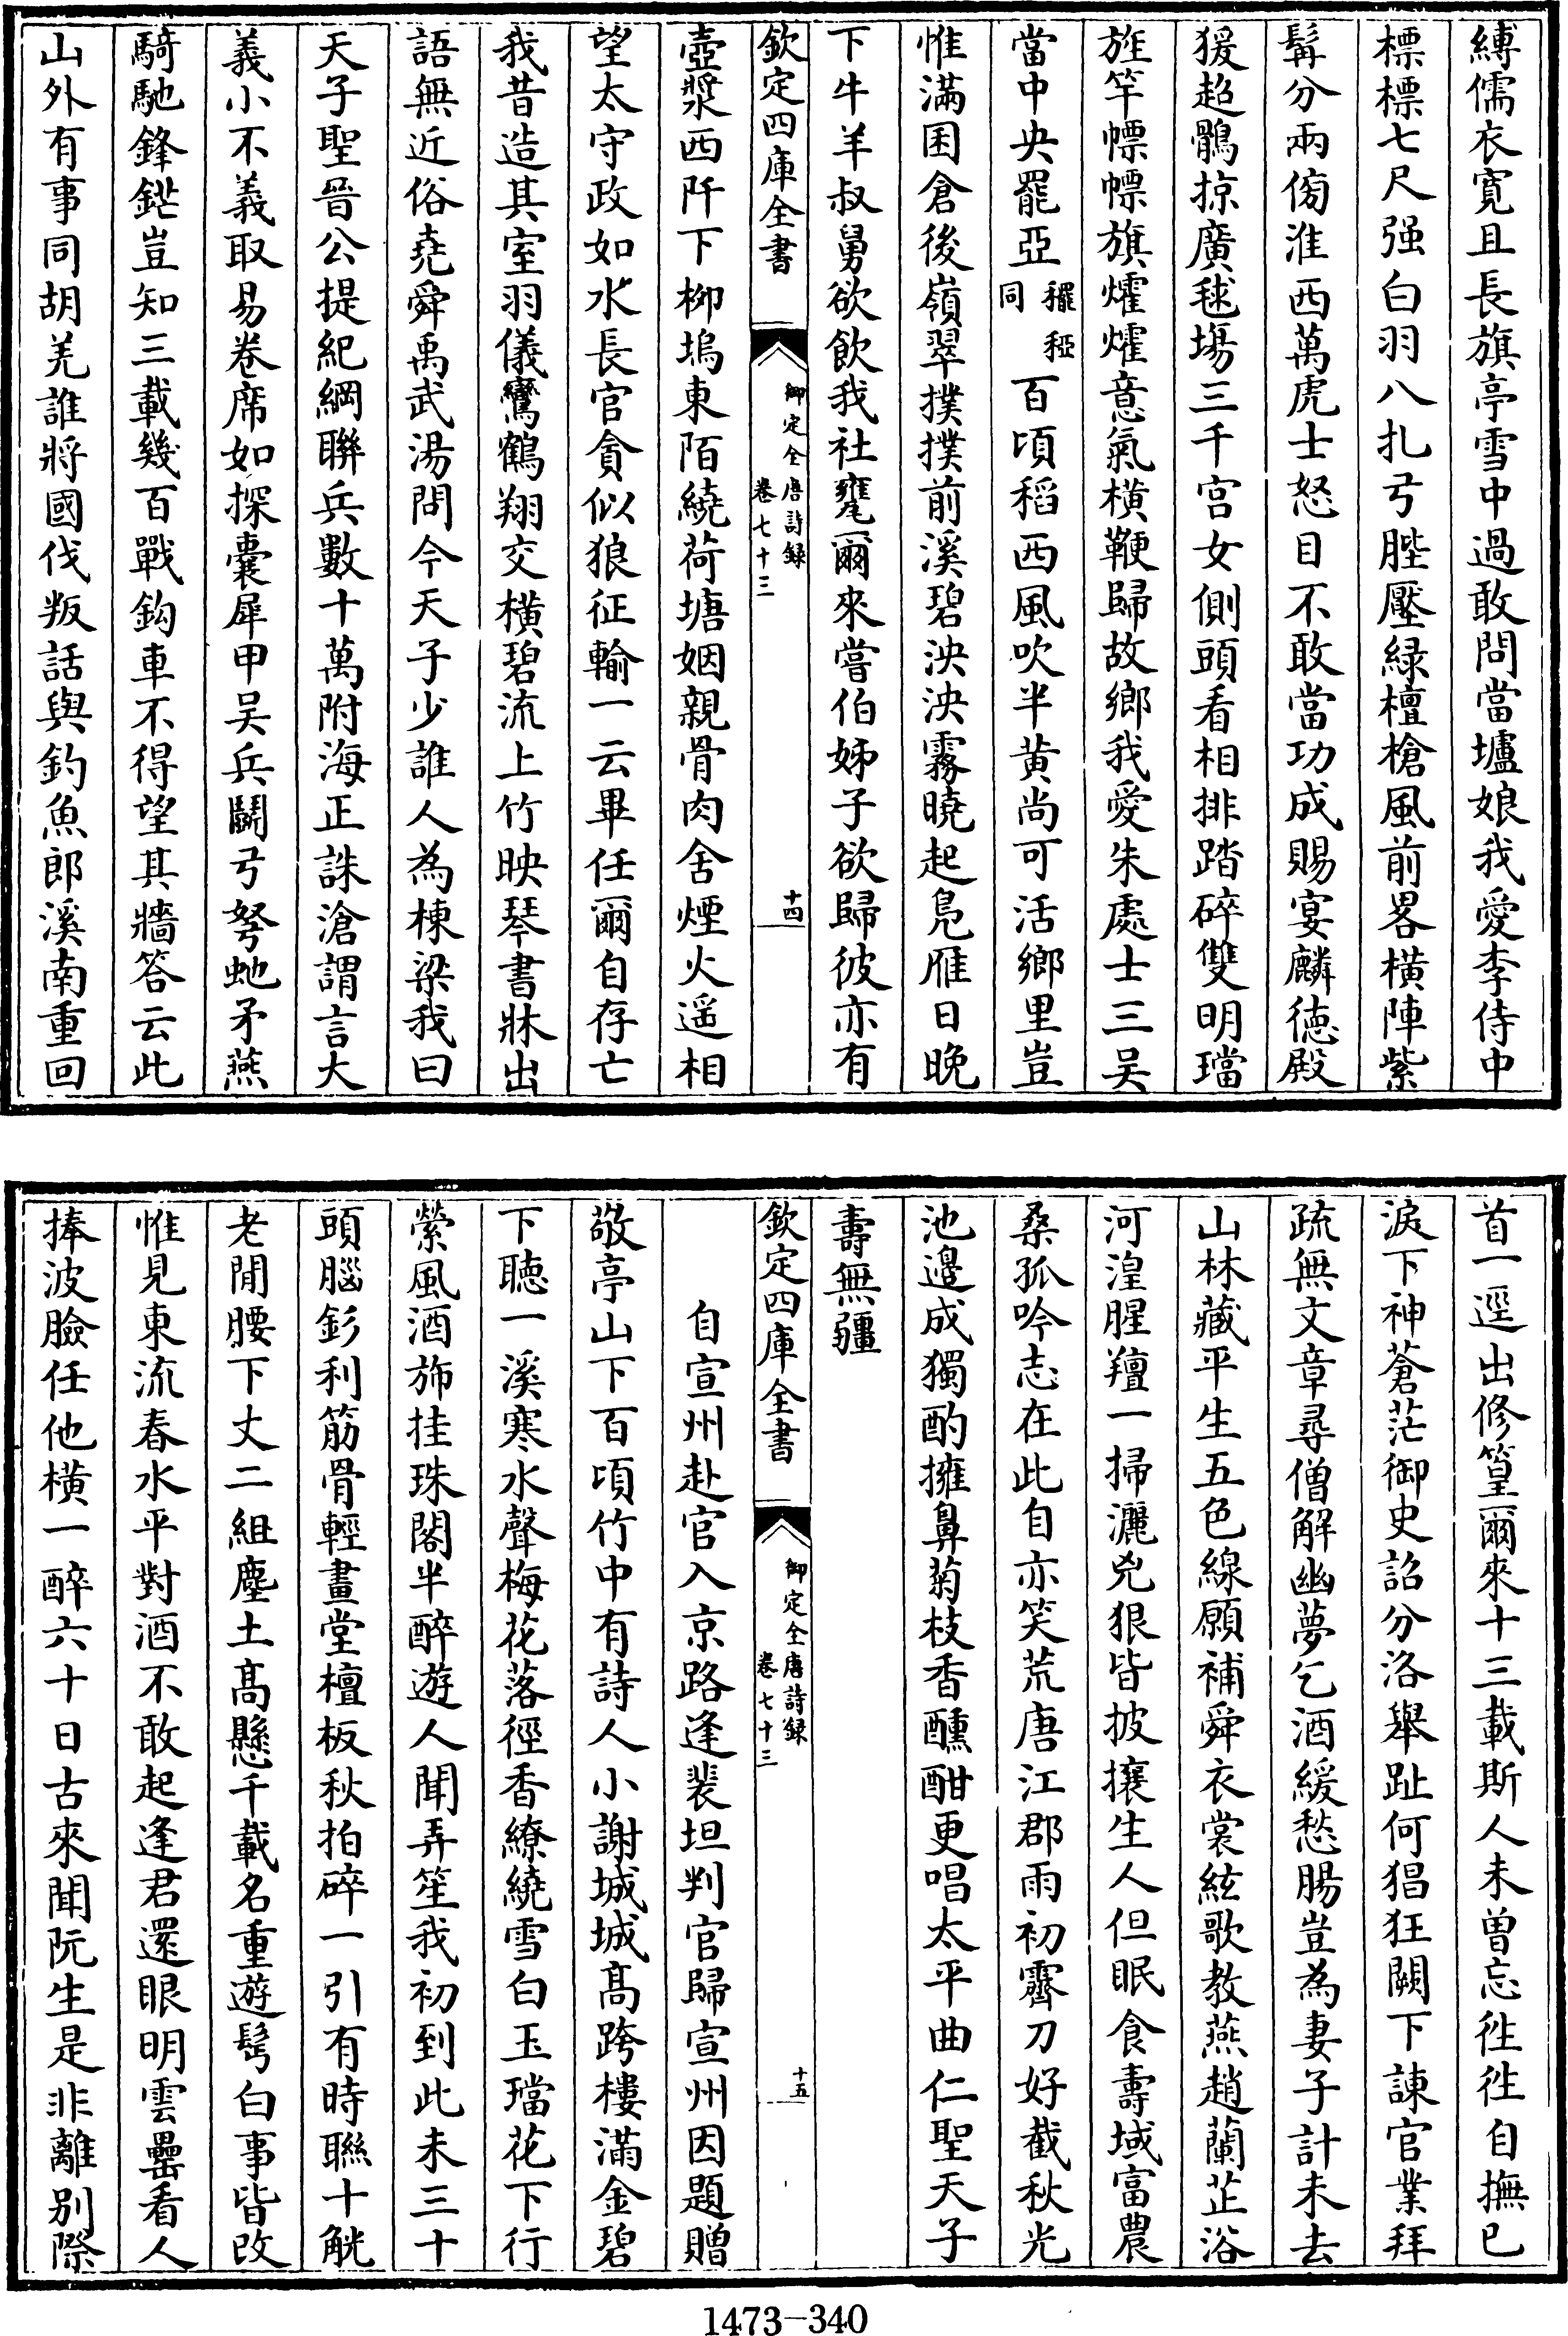 縛儒衣寛且長旗亭雪中過敢問當壚娘我愛李侍中
標標七尺强白羽八扎弓䏶壓緑檀槍風前畧横陣紫
髯分兩傍淮西萬虎士怒目不敢當功成賜宴麟德殿
猨超鶻掠廣毬場三千宫女側頭看相排踏碎雙明璫
旌竿幖幖旗㸌㸌意氣横鞭歸故鄉我愛朱處士三吴
當中央罷亞䆉稏同百頃稻西風吹半黄尚可活鄉里豈
惟滿囷倉後嶺翠撲撲前溪碧泱泱霧曉起鳬雁日晚
下牛羊叔舅欲飲我社甕爾來嘗伯姊子欲歸彼亦有
欽定四庫全書
御定全唐詩録
卷七十三
十四
壺漿西阡下栁塢東陌繞荷塘姻親骨肉舍煙火遥相
望太守政如水長官貪似狼征輸一云畢任爾自存亡
我昔造其室羽儀鸞鶴翔交横碧流上竹映琴書牀出
語無近俗堯舜禹武湯問今天子少誰人為棟梁我曰
天子聖晉公提紀綱聯兵數十萬附海正誅滄謂言大
義小不義取易卷席如探囊犀甲吴兵鬬弓弩虵矛燕
騎馳鋒鋩豈知三載幾百戰鈎車不得望其牆答云此
山外有事同胡羌誰將國伐叛話與釣魚郎溪南重回
首一逕出修篁爾來十三載斯人未曽忘徃徃自撫已
淚下神蒼茫御史詔分洛舉趾何猖狂闕下諫官業拜
疏無文章尋僧解幽夢乞酒緩愁腸豈為妻子計未去
山林藏平生五色線願補舜衣裳絃歌教燕趙蘭芷浴
河湟腥羶一掃灑兇狠皆披攘生人但眠食壽域富農
桑孤吟志在此自亦笑荒唐江郡雨初霽刀好截秋光
池邊成獨酌擁鼻菊枝香醺酣更唱太平曲仁聖天子
壽無疆
欽定四庫全書
御定全唐詩録
卷七十三
十五
自宣州赴官入京路逢裴坦判官歸宣州因題贈
敬亭山下百頃竹中有詩人小謝城城髙跨樓滿金碧
下聽一溪寒水聲梅花落徑香繚繞雪白玉璫花下行
縈風酒斾挂珠閣半醉遊人聞弄笙我初到此未三十
頭腦釤利筋骨輕畫堂檀板秋拍碎一引有時聯十觥
老閒腰下丈二組塵土髙懸千載名重遊鬂白事皆改
惟見東流春水平對酒不敢起逢君還眼明雲罍看人
捧波臉任他横一醉六十日古來聞阮生是非離别際
1473-340